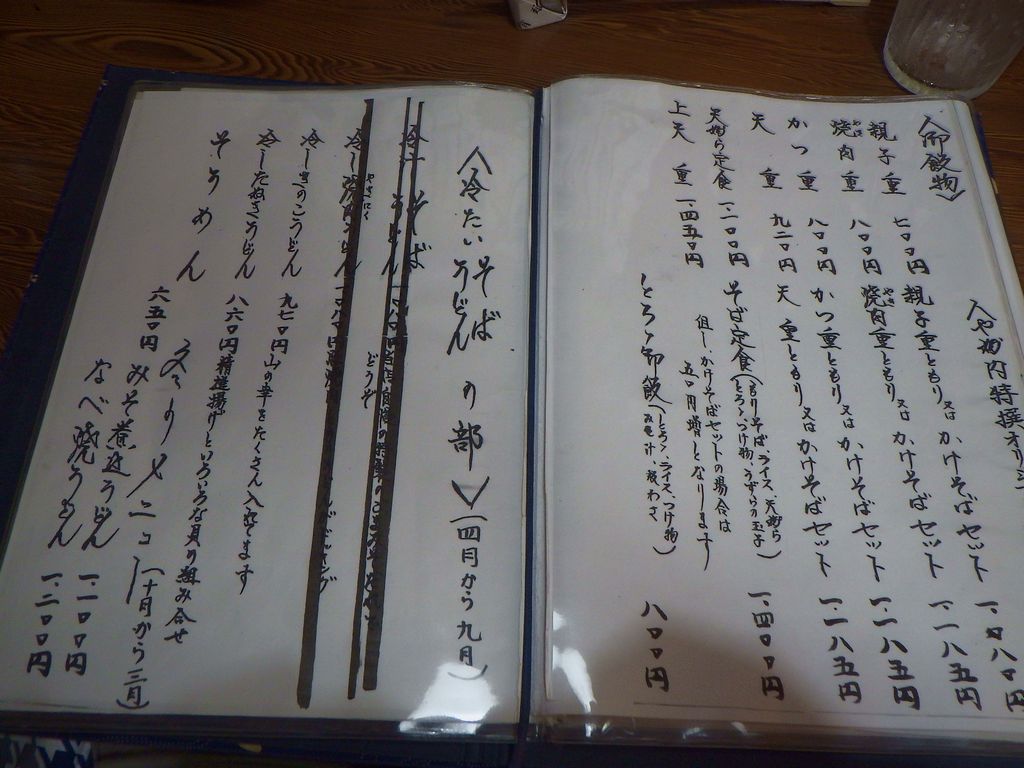 〈御飯物〉
親子重 七〇〇円
焼肉重 八〇〇円
かつ重 八〇〇円
天重 九二〇円
天婦ら定食 一、二〇〇円
上天重 一、四五〇円
親子重ともり又はかけそばセット 一、〇八〇円
焼肉重ともり又はかけそばセット 一、一八五円
かつ重ともり又はかけそばセット 一、一八五円
天重ともり又はかけそばセット 一、一八五円
そば定食(もりそば、ライス、天婦ら
とろろ、つけ物、うずらの玉子) 一、四〇〇円
但し、かけそばセットの場合は
五〇円増しとなります
とろろ御飯(とろろ、ライス、つけ物
みそ汁、薬わさ) 八〇〇円
〈冷たいそば
うどんの部〉(四月から九月)
冷しきのこうどん 九七〇円 山の幸をたくさん入れてます
冷したぬきうどん 八六〇円 精進揚げといろいろな具の組み合せ
そうめん 六五〇円
冬のメニュー(十月から三月)
みそ煮込うどん 一、一〇〇円
なべ焼うどん 一、二〇〇円